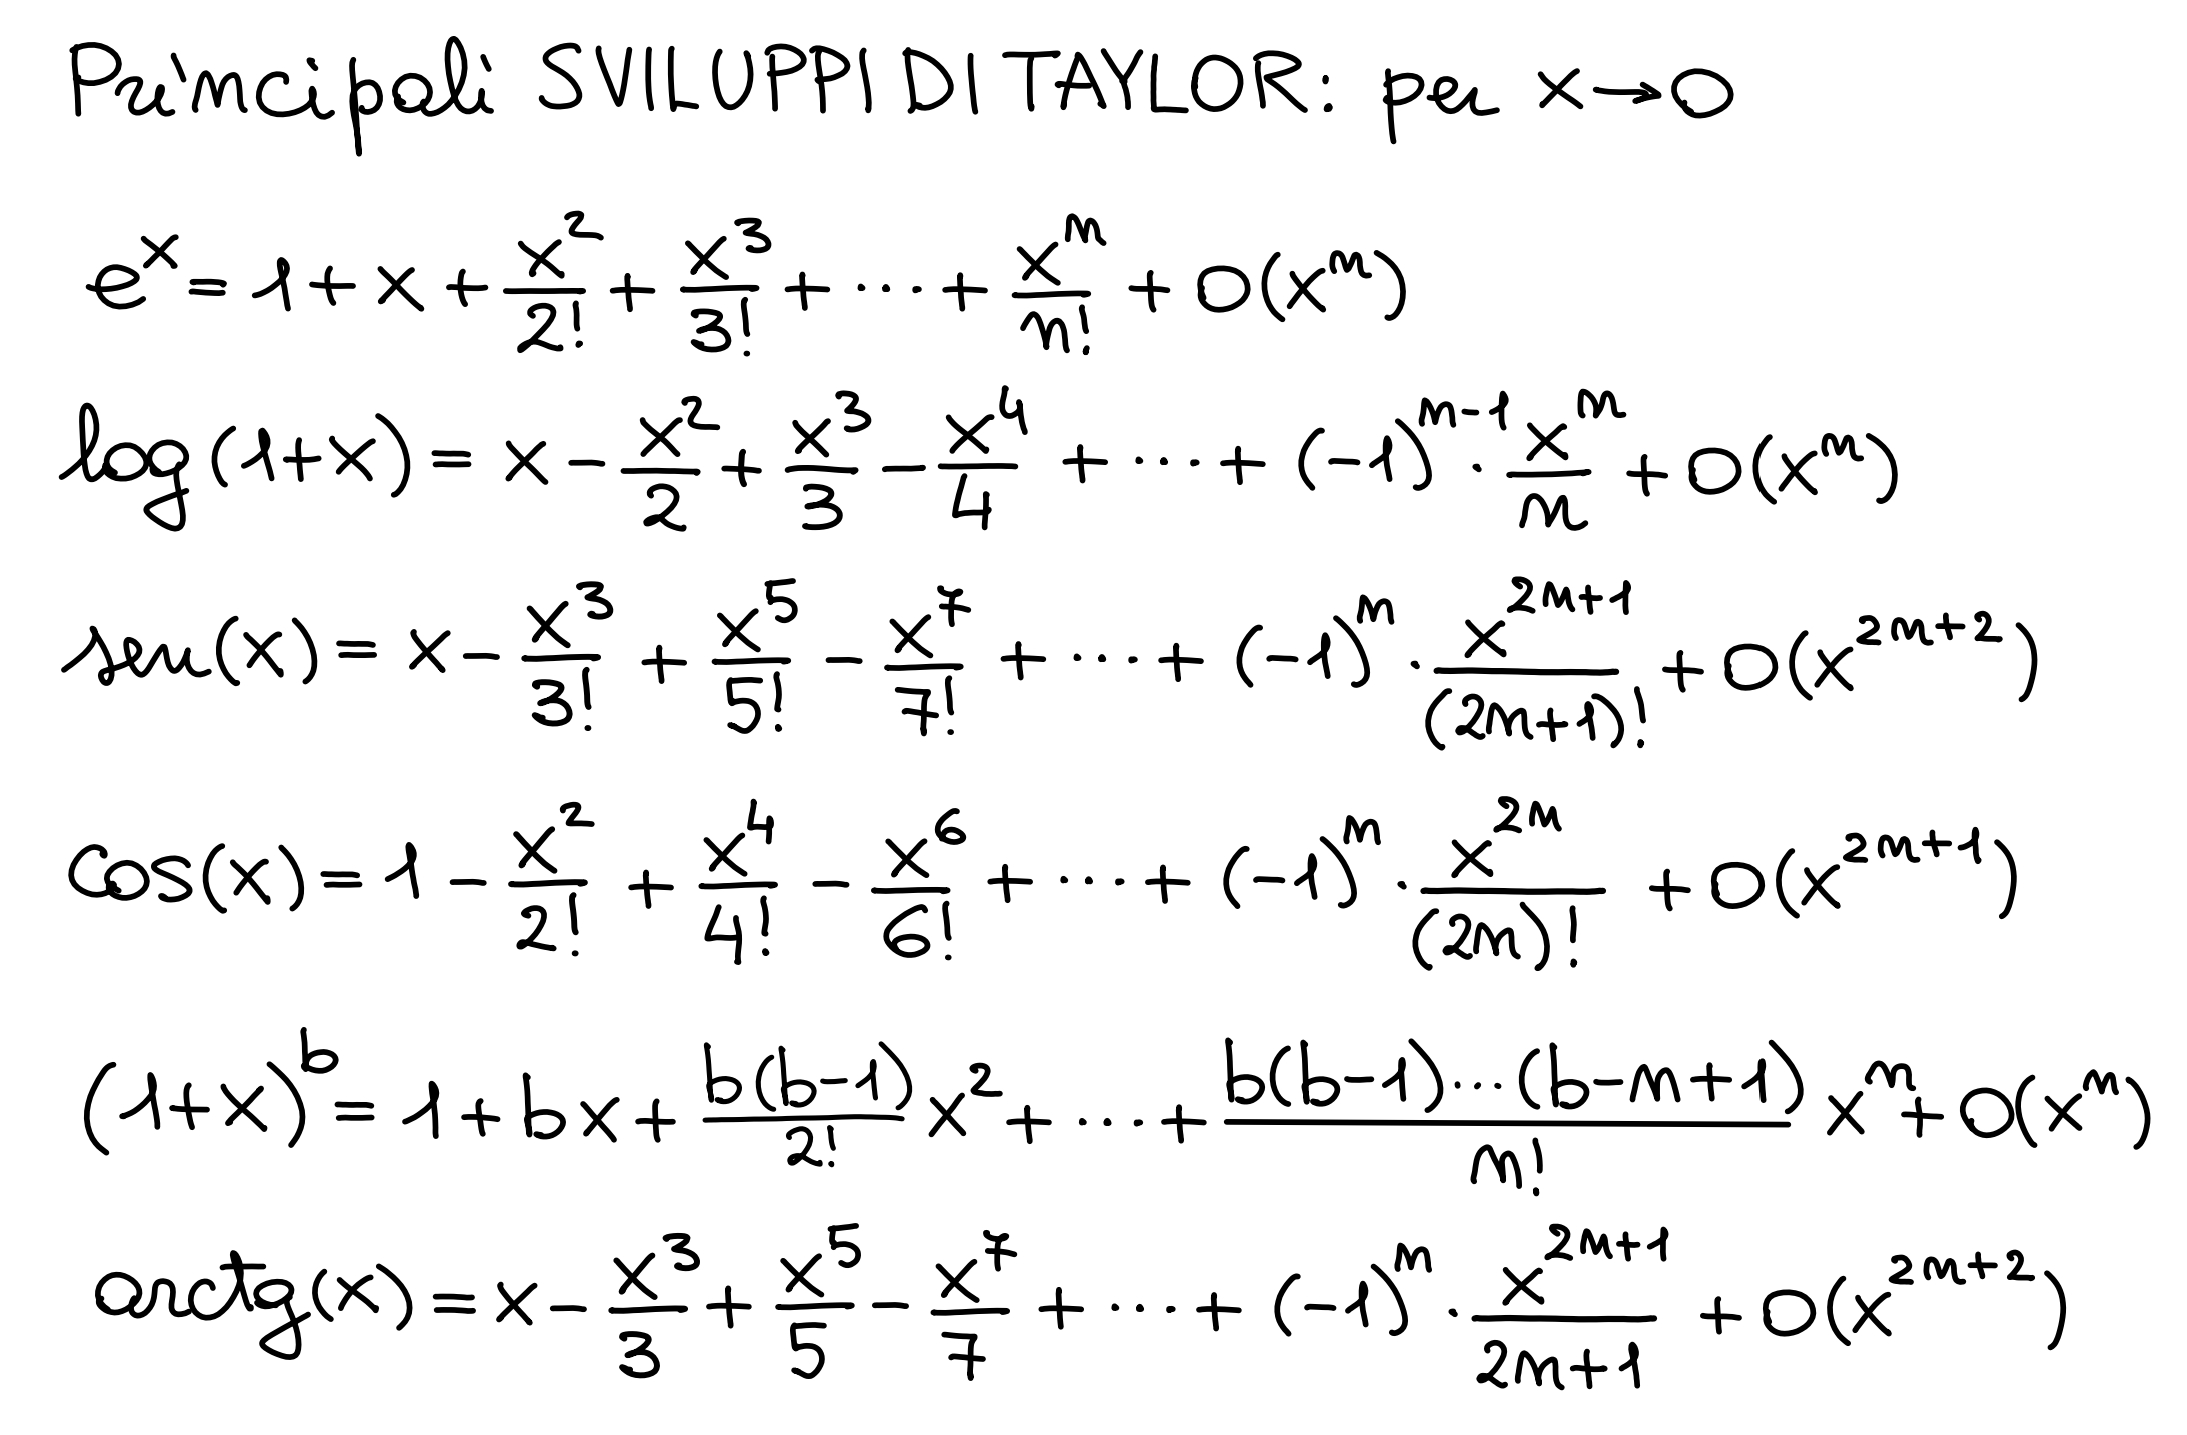 Principali SVILUPPI DI TAYLOR: per x→0
e^x = 1 + x + x^2/2! + x^3/3! + ... + x^n/n! + o(x^n)
log(1+x) = x - x^2/2 + x^3/3 - x^4/4 + ... + (-1)^(n-1) · x^n/n + o(x^n)
sen(x) = x - x^3/3! + x^5/5! - x^7/7! + ... + (-1)^n · x^(2n+1)/(2n+1)! + o(x^(2n+2))
cos(x) = 1 - x^2/2! + x^4/4! - x^6/6! + ... + (-1)^n · x^(2n)/(2n)! + o(x^(2n+1))
(1+x)^b = 1 + bx + b(b-1)/2! x^2 + ... + b(b-1)...(b-n+1)/n! x^n + o(x^n)
arctg(x) = x - x^3/3 + x^5/5 - x^7/7 + ... + (-1)^n · x^(2n+1)/2n+1 + o(x^(2n+2))